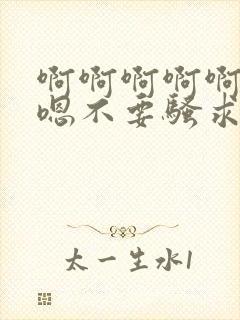 啊啊啊啊啊
嗯不要骚求
太一生水1